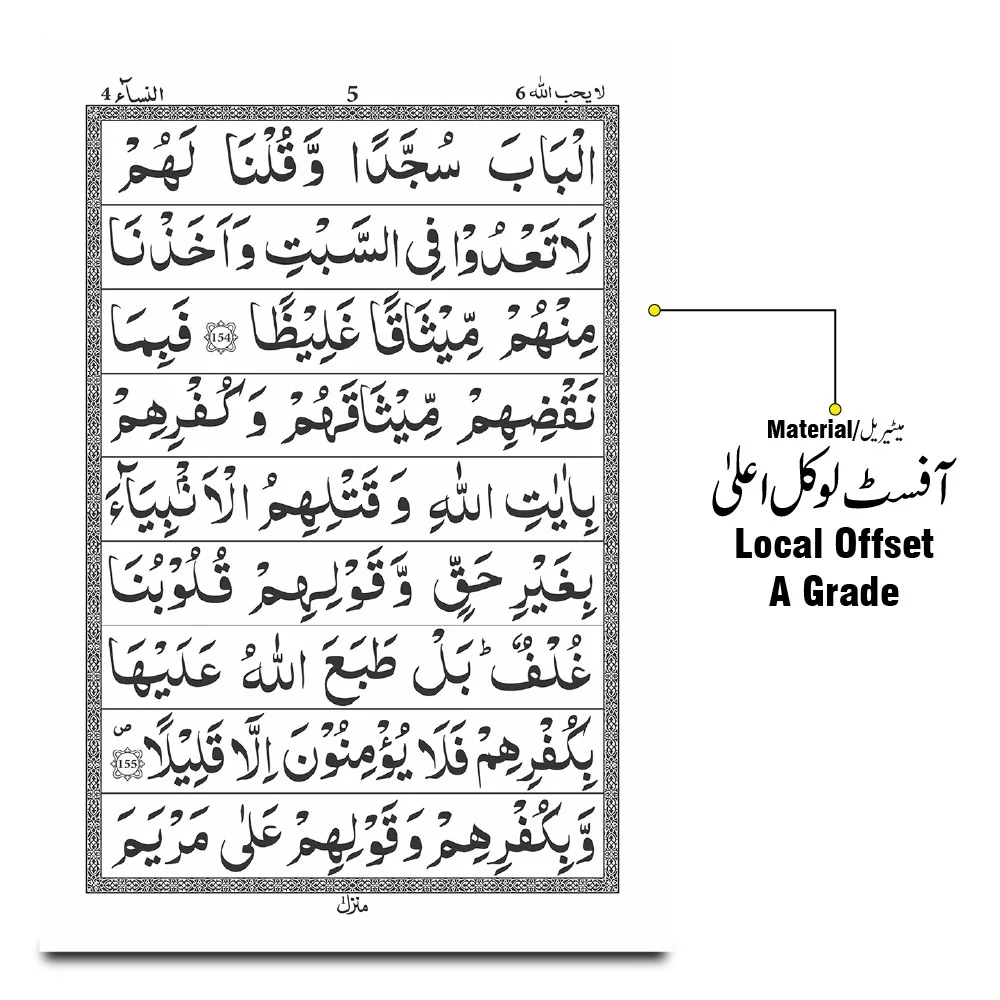 لا یحب اللہ 6
5
النسآء 4
الْبَابَ سُجَّدًا وَّقُلْنَا لَهُمْ
لَا تَعْدُوْا فِی السَّبْتِ وَاَخَذْنَا
مِنْهُمْ مِّیْثَاقًا غَلِیْظًا 154 فَبِمَا
نَقْضِهِمْ مِّیْثَاقَهُمْ وَكُفْرِهِمْ
بِاٰیٰتِ اللّٰهِ وَقَتْلِهِمُ الْاَنْۢبِیَآءَ
بِغَیْرِ حَقٍّ وَّقَوْلِهِمْ قُلُوْبُنَا
غُلْفٌ ؕ بَلْ طَبَعَ اللّٰهُ عَلَیْهَا
بِكُفْرِهِمْ فَلَا یُؤْمِنُوْنَ اِلَّا قَلِیْلًا 155 ص
وَّبِكُفْرِهِمْ وَقَوْلِهِمْ عَلٰی مَرْیَمَ
منزل ١
Material/میٹیریل
آفسٹ لوکل اعلیٰ
Local Offset
A Grade